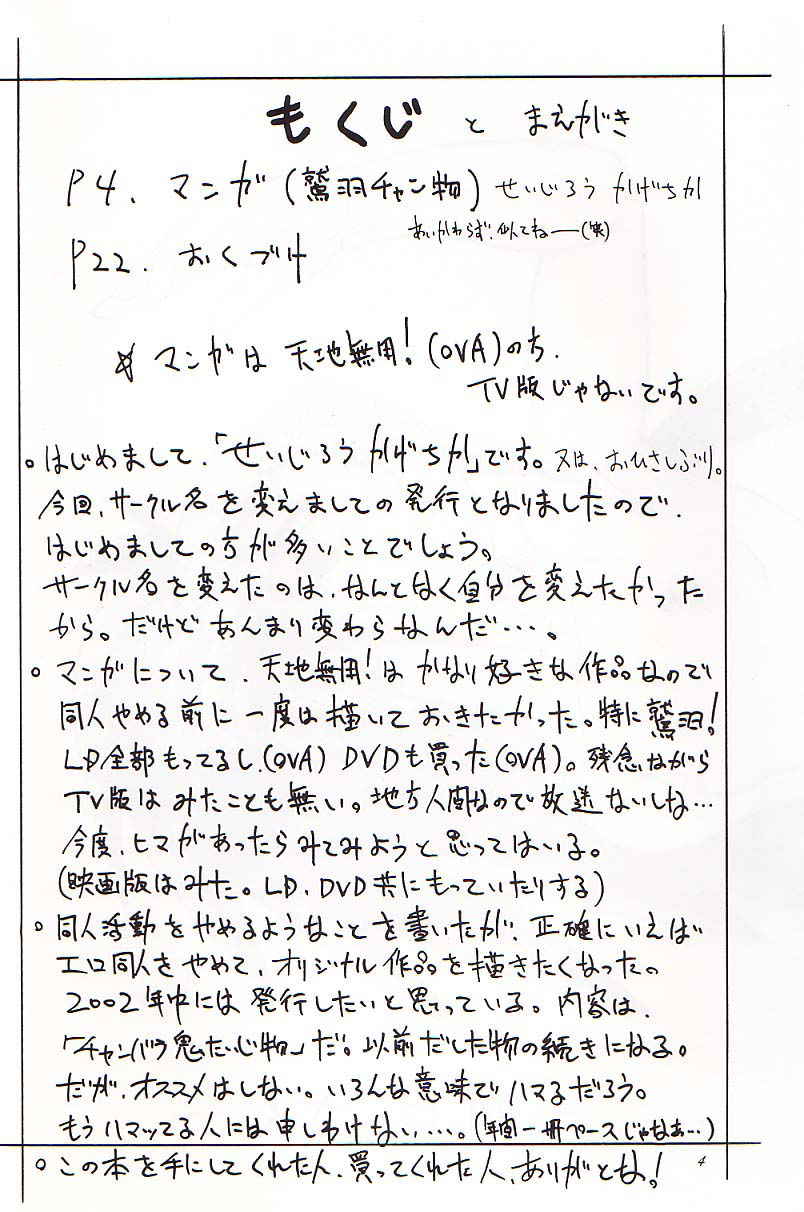 もくじ と まえがき
P4. マンガ(鷲羽チャン物) せいじろう かげちか
あいかわらず、似てねー(笑)
P22. おくづけ
☆ マンガは 天地無用!(OVA)のち.
TV版じゃないです。
○はじめまして、「せいじろう かげちか」です。又は、おひさしぶり。
今回、サークル名を変えましての発行となりましたので、
はじめましての方が多いことでしょう。
サークル名を変えたのは、なんとなく自分を変えたかった
から。だけどあんまり変わらなんだ…。
○マンガについて、天地無用!はかなり好きな作品なので
同人やめる前に一度は描いておきたかった。特に鷲羽!
LD全部もってるし、(OVA) DVDも買った(OVA)。残念ながら
TV版はみたことも無い。地方人間なので放送ないしな…
今度、ヒマがあったらみてみようと思ってはいる。
(映画版はみた。LD、DVD共にもっていたりする)
○同人活動をやめるようなことを書いたが、正確にいえば
エロ同人をやめて、オリジナル作品を描きたくなったの。
2002年中には発行したいと思っている。内容は、
「チャンバラ鬼たいじ物」だ。以前だした物の続きになる。
だが、オススメはしない。いろんな意味でハマるだろう。
もうハマッてる人には申しわけない…。(年間一冊ペースじゃなぁ…)
○この本を手にしてくれた人、買ってくれた人、ありがとな!
4